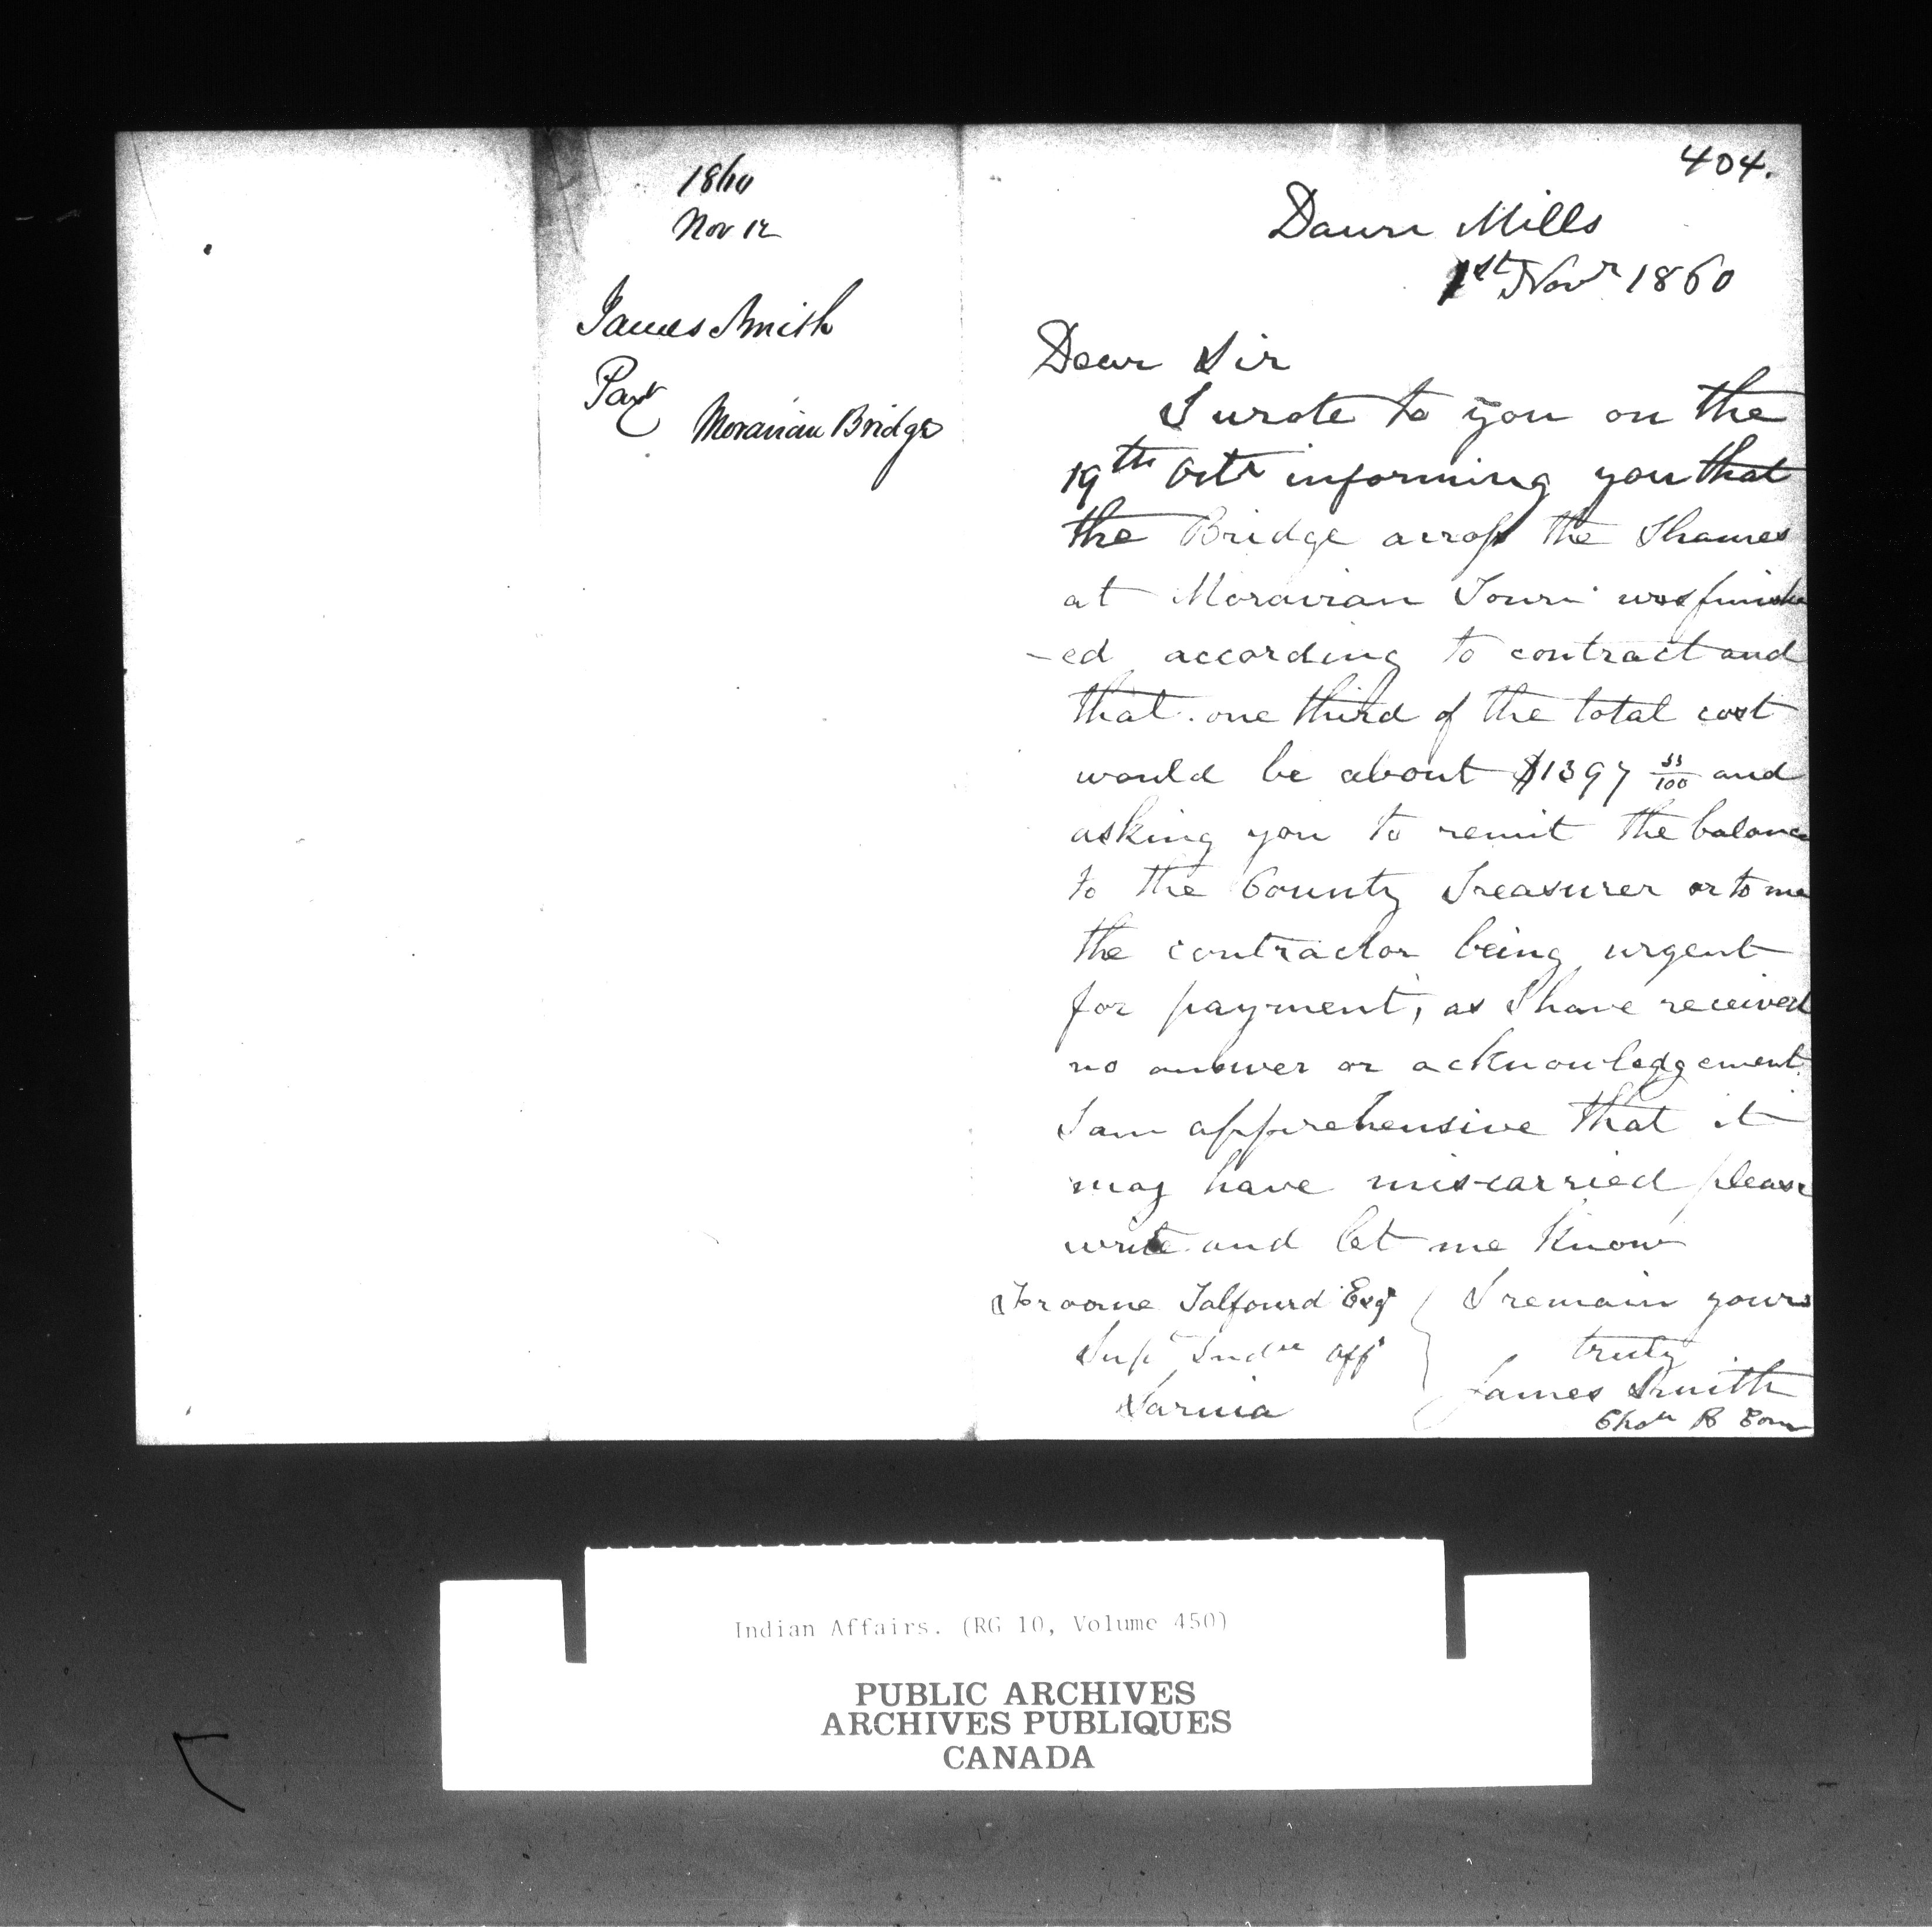 1860
Nov 12
James Smith
Pay
Moravian Bridge
404.
Dawn Mills
1st Novr 1860
Dear Sir
I wrote to you on the
19th Octr informing you that
the Bridge across the Thames
at Moravian Town was finish
-ed according to contract and
that one third of the total cost
would be about $1397 33/100 and
asking you to remit the balance
to the County Treasurer or to me
the contractor being urgent
for payment, as I have received
no answer or acknowledgement
I am apprehensive that it
may have miscarried please
write and let me know
Froome Talfourd Esqr
I remain yours
Supt Indn Affs
truly
Sarnia
James Smith
Chan R Com
Indian Affairs. (RG 10, Volume 450)
PUBLIC ARCHIVES
ARCHIVES PUBLIQUES
CANADA